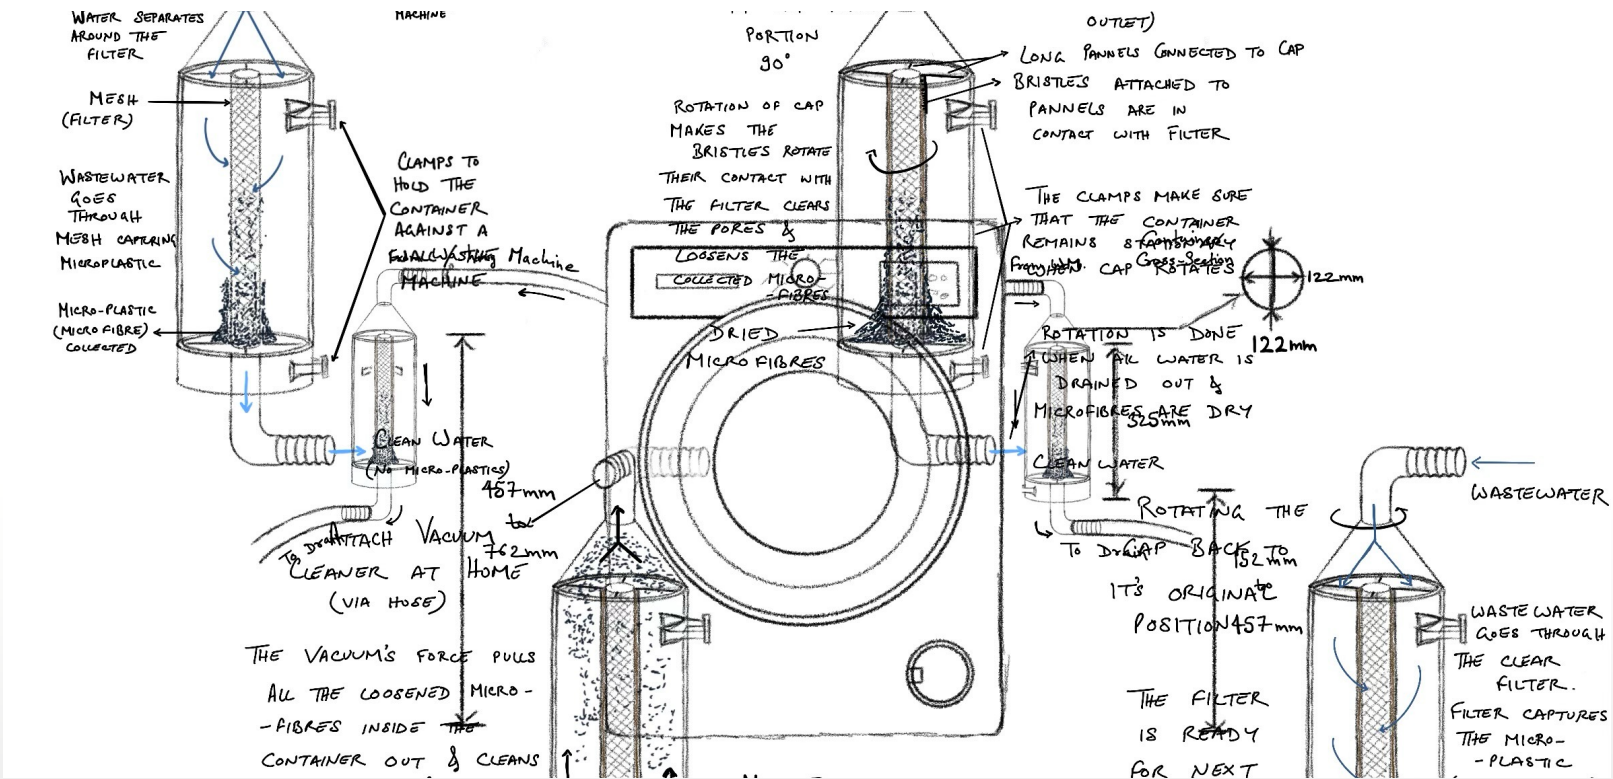 WATER SEPARATES
AROUND THE
FILTER
MACHINE
MESH
(FILTER)
WASTEWATER
GOES
THROUGH
MESH CAPTURING
MICROPLASTIC
MICRO-PLASTIC
(MICROFIBRE)
COLLECTED
CLAMPS TO
HOLD THE
CONTAINER
AGAINST A
Washing Machine
MACHINE
CLEAN WATER
(NO MICRO-PLASTICS)
457mm
to
762mm
To Drain
ATTACH VACUUM
CLEANER AT HOME
(VIA HOSE)
THE VACUUM'S FORCE PULLS
ALL THE LOOSENED MICRO-
-FIBRES INSIDE THE
CONTAINER OUT & CLEANS
PORTION
90°
ROTATION OF CAP
MAKES THE
BRISTLES ROTATE
THEIR CONTACT WITH
THE FILTER CLEARS
THE PORES &
LOOSENS THE
COLLECTED MICRO-
-FIBRES
DRIED
MICROFIBRES
OUTLET)
LONG PANNELS CONNECTED TO CAP
BRISTLES ATTACHED TO
PANNELS ARE IN
CONTACT WITH FILTER
THE CLAMPS MAKE SURE
THAT THE CONTAINER
REMAINS STATIONARY
WHEN CAP ROTATES
From W.M.
Cross-Section
122mm
122mm
ROTATION IS DONE
WHEN ALL WATER IS
DRAINED OUT &
MICROFIBRES ARE DRY
325mm
CLEAN WATER
To Drain
ROTATING THE
CAP BACK TO
IT'S ORIGINAL
POSITION
152mm
to
457mm
THE FILTER
IS READY
FOR NEXT
WASTEWATER
WASTEWATER
GOES THROUGH
THE CLEAR
FILTER.
FILTER CAPTURES
THE MICRO-
-PLASTIC